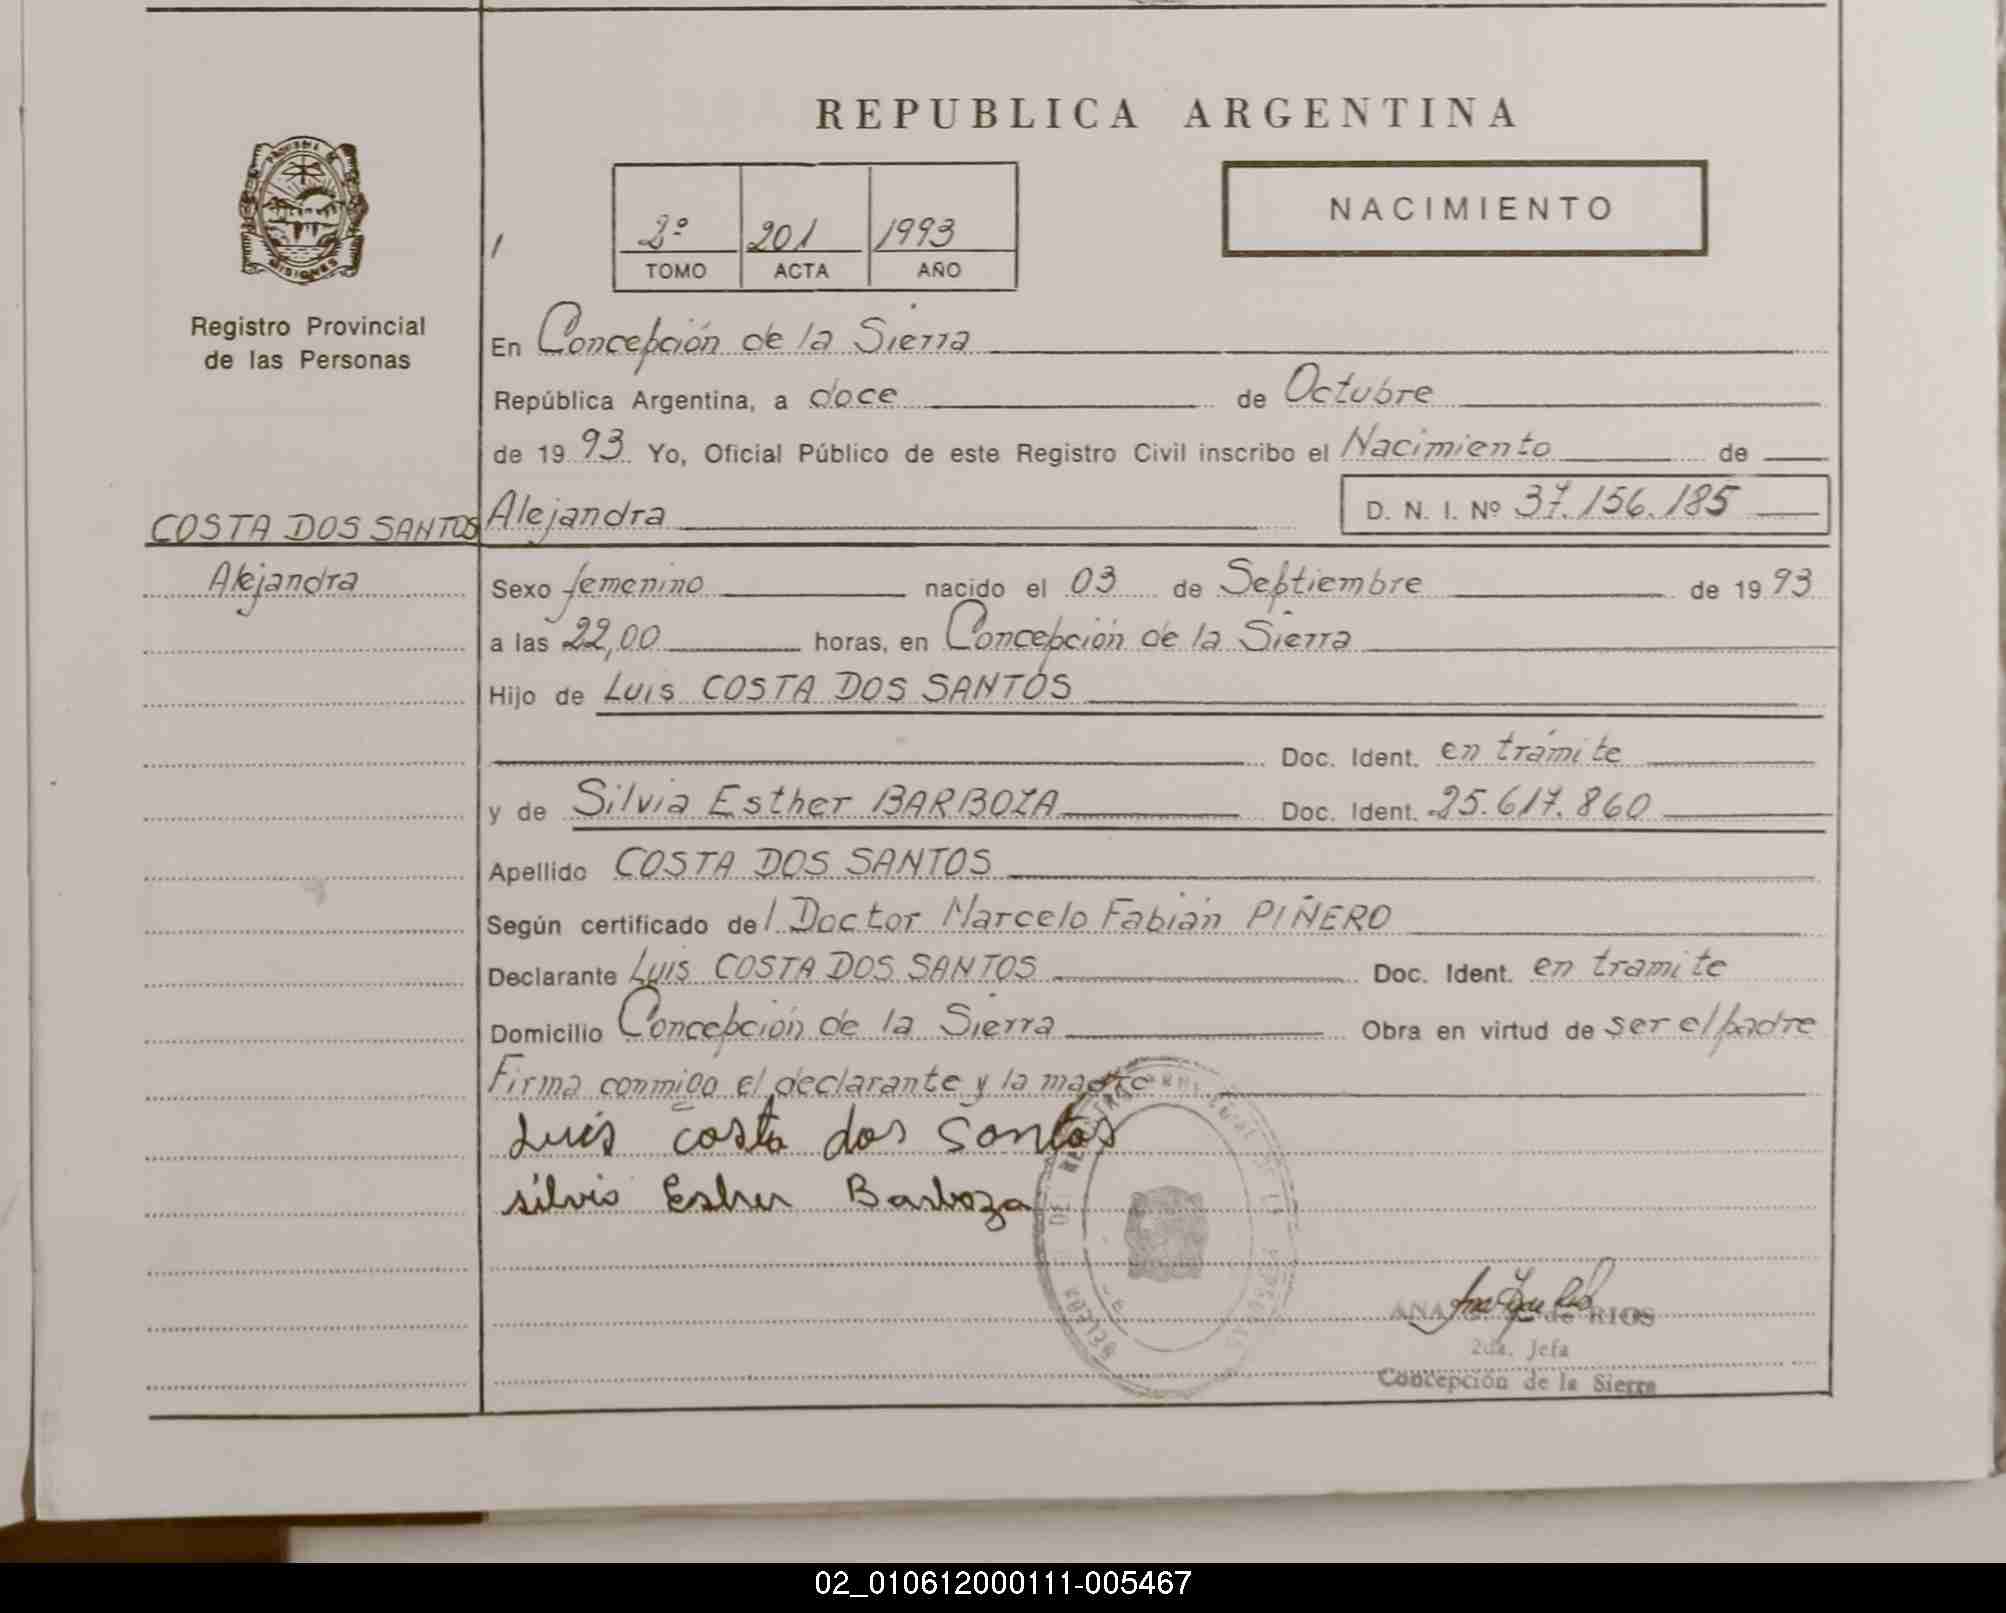 REPUBLICA ARGENTINA
PROVINCIA DE MISIONES
NACIMIENTO
2º 201 1993
TOMO ACTA AÑO
Registro Provincial
de las Personas
En Concepción de la Sierra
República Argentina, a doce de Octubre
de 1993 Yo, Oficial Público de este Registro Civil inscribo el Nacimiento de
COSTA DOS SANTOS Alejandra D. N. I. Nº 37.156.185
Alejandra
Sexo femenino nacido el 03 de Septiembre de 1993
a las 22,00 horas, en Concepción de la Sierra
Hijo de Luis COSTA DOS SANTOS
Doc. Ident. en trámite
y de Silvia Esther BARBOZA Doc. Ident. 25.617.860
Apellido COSTA DOS SANTOS
Según certificado del Doctor Marcelo Fabián PIÑERO
Declarante Luis COSTA DOS SANTOS Doc. Ident. en tramite
Domicilio Concepción de la Sierra Obra en virtud de ser el padre
Firma conmigo el declarante y la madre
Luis costa dos Santos
silvia Esther Barboza
ANA de RIOS
2da. Jefa
Concepción de la Sierra
02_010612000111-005467